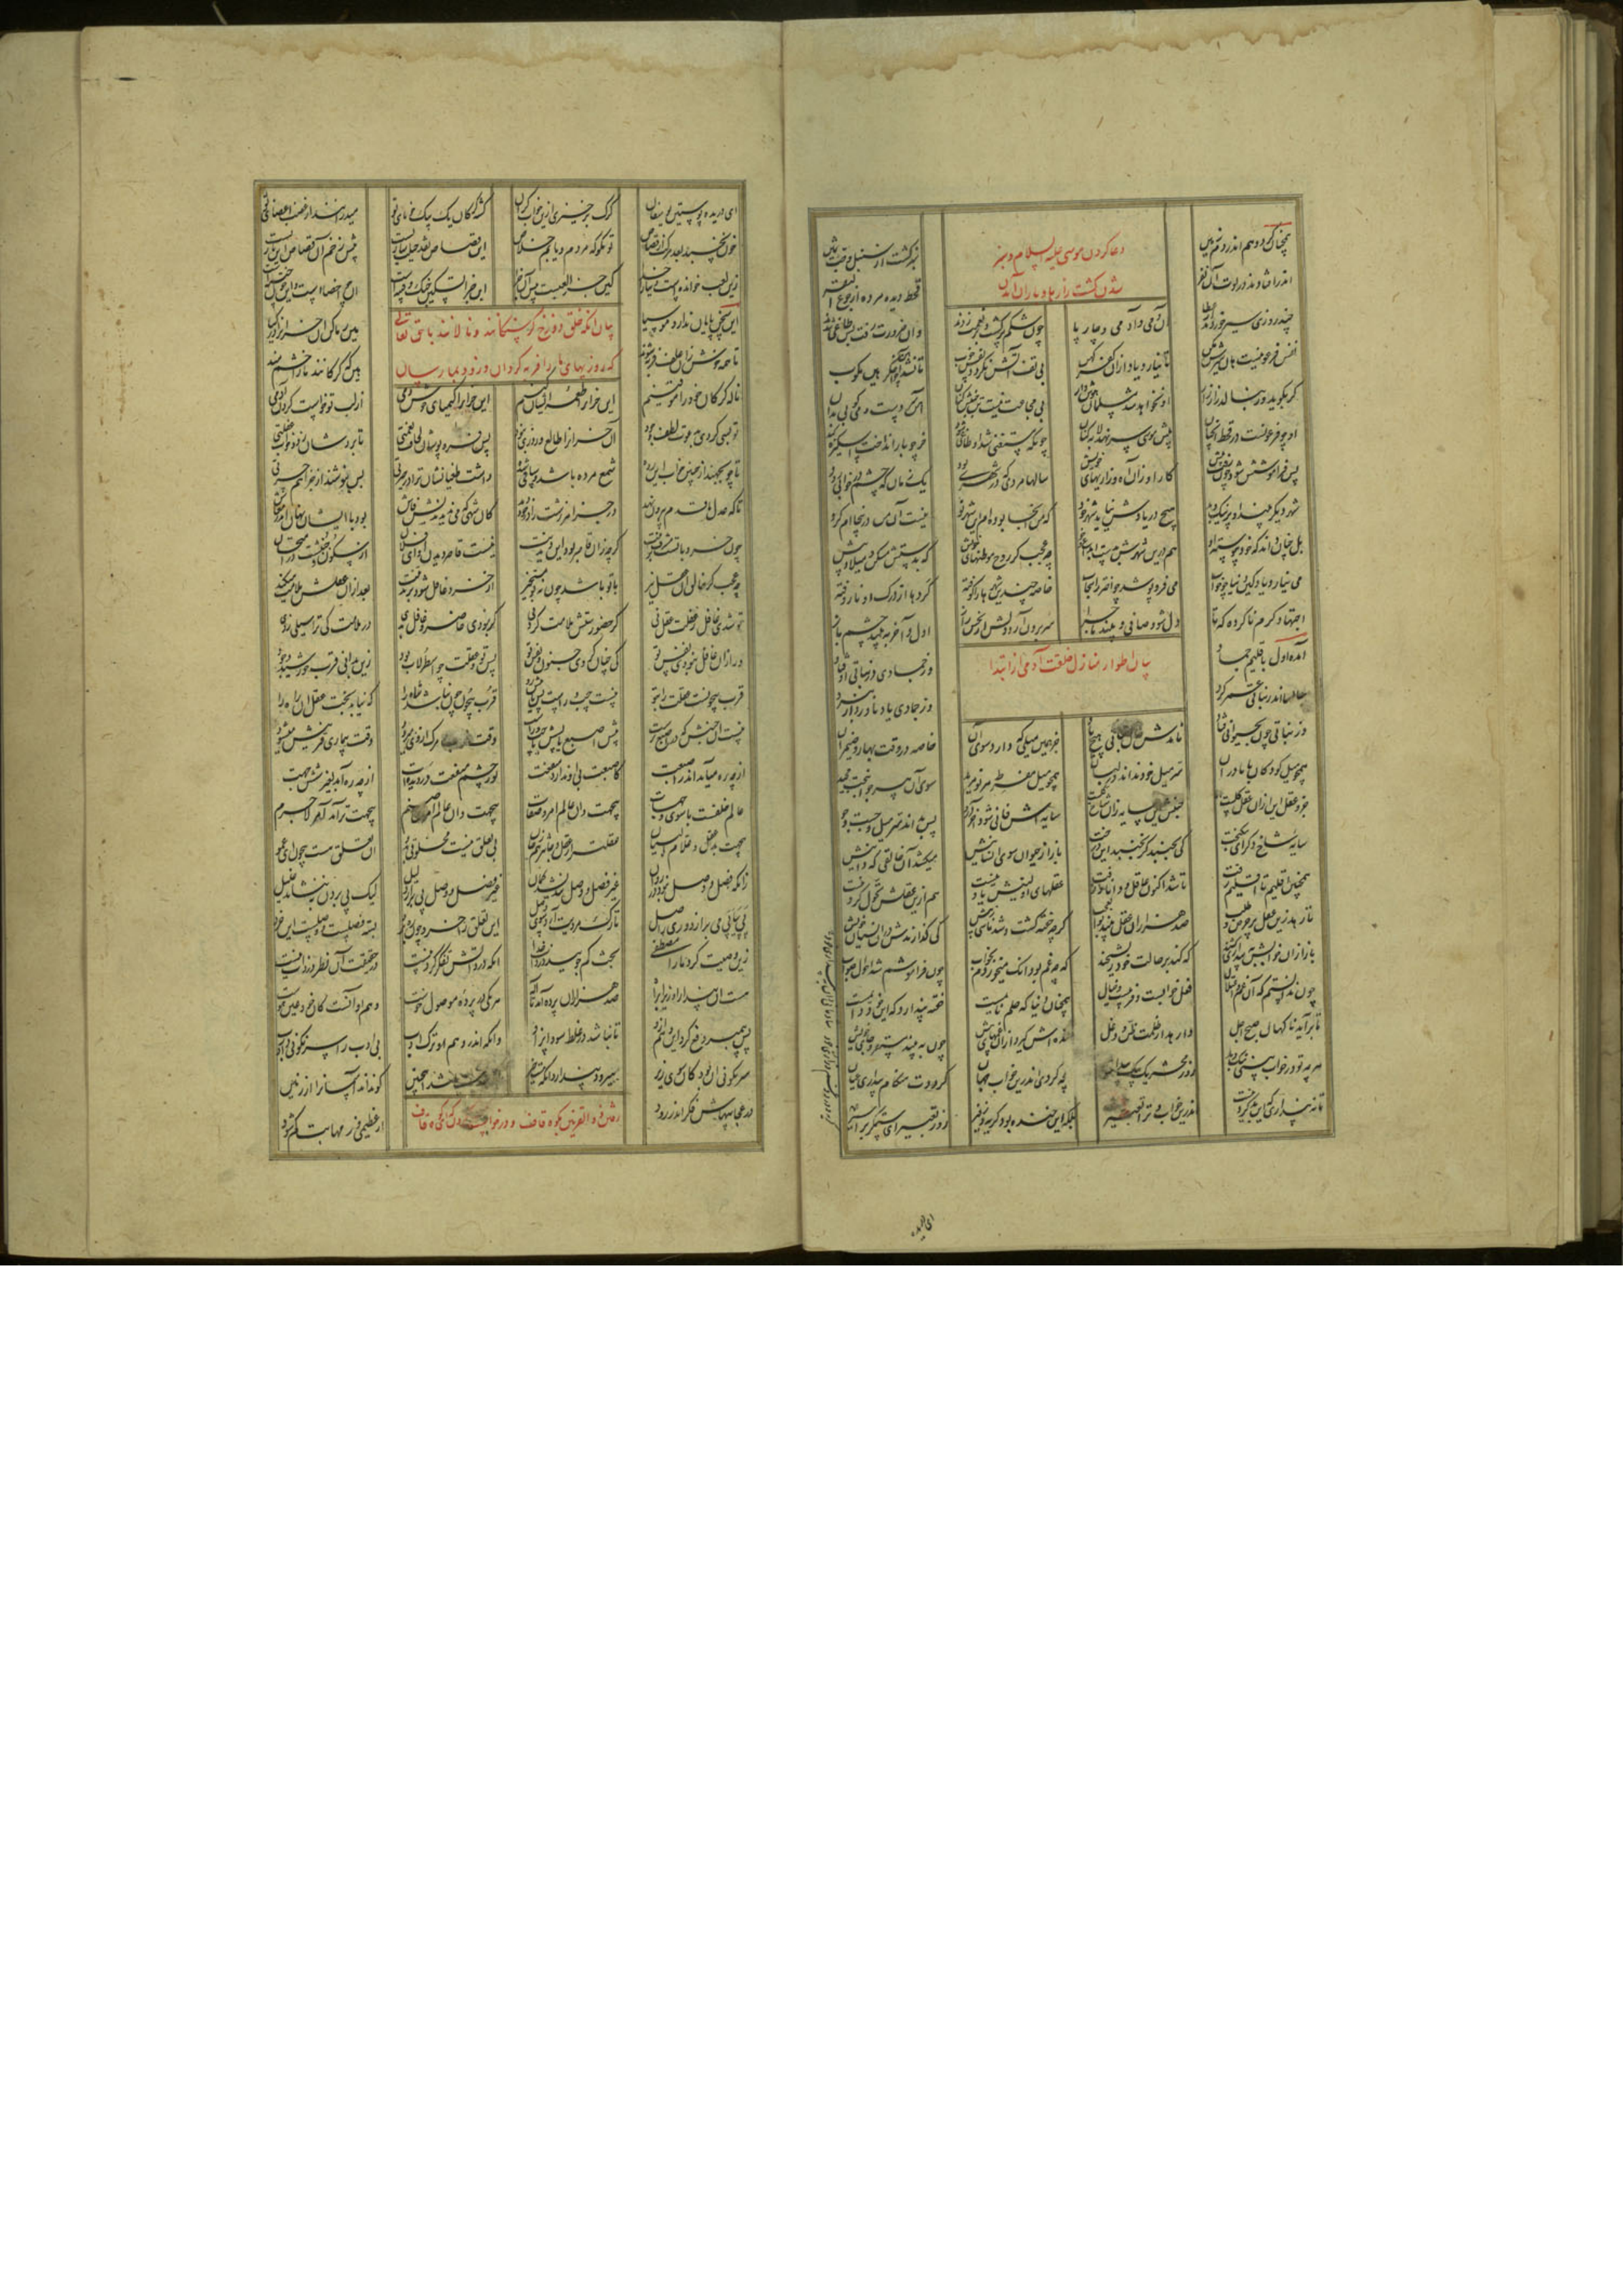 همچنان کرد و هم اندر دم زمین
دعا کردن موسی علیه السلام و سبز
شدن کشت زار و باران آمدن
سبز گشت از سنبل و حب ثمین
اندر افتادند در لوت آن نفر
قحط دیده مرده از جوع البقر
چند روزی سیر خوردند از عطا آن دمی و آدمی و چارپا
چون شکم پر گشت و بر نعمت زدند وان ضرورت رفت پس طاغی شدند
نفس فرعونیست هان سیرش مکن تا نیارد یاد از آن کفر کهن
بی تف آتش نگردد نفس خوب تا نشد آهن چو اخگر هین مکوب
بی مجاعت نیست تن جنبش کنان آهن سردیست می کوبی بدان
گر بگرید ور بنالد زار زار او نخواهد شد مسلمان هوش دار
او چو فرعونست در قحط آنچنان پیش موسی سر نهد لابه کنان
چونکه مستغنی شد او طاغی شود خر چو بار انداخت اسکیزه زند
پس فراموشش شود چون رفت پیش کار او زان آه و زاریهای خویش
سالها مردی که در شهری بود یک زمان که چشم در خوابی رود
شهر دیگر بیند او پر نیک و بد هیچ در یادش نیاید شهر خود
که من آنجا بوده ام این شهر نو نیست آن من درینجا ام گرو
بل چنان داند که خود پیوسته او هم درین شهرش بدست ابداع و خو
چه عجب گر روح موطنهای خویش که بدستش مسکن و میلاد پیش
می نیارد یاد کین دنیا چو خواب می فرو پوشد چو اختر را سحاب
خاصه چندین شهرها را کوفته گردها از درک او نا روفته
اجتهاد گرم نا کرده که تا دل شود صافی و بیند ماجرا
سر برون آرد دلش از بخش راز اول و آخر ببیند چشم باز
بیان اطوار منازل خلقت آدمی از ابتدا
آمده اول باقلیم جماد وز جمادی در نباتی اوفتاد
سالها اندر نباتی عمر کرد وز جمادی یاد ناورد از نبرد
وز نباتی چون بحیوانی فتاد نامدش حال نباتی هیچ یاد
جز همین میلی که دارد سوی آن خاصه در وقت بهار و ضیمران
همچو میل کودکان با مادران سر میل خود نداند در لبان
همچو میل مفرط هر نو مرید سوی آن پیر جوانبخت مجید
جزو عقل این از آن عقل کلست جنبش این سایه زان شاخ گلست
سایه اش فانی شود آخر درو پس بداند سر میل و جست و جو
سایه شاخ دگر ای نیکبخت کی بجنبد گر نجنبد این درخت
باز از حیوان سوی انسانیش میکشد آن خالقی که دانیش
همچنین اقلیم تا اقلیم رفت تا شد اکنون عاقل و دانا و زفت
عقلهای اولینش یاد نیست هم ازین عقلش تحول کردنیست
تا رهد زین عقل پر حرص و طلب صد هزاران عقل بیند بوالعجب
گرچه خفته گشت و شد ناسی ز پیش کی گذارندش در آن نسیان خویش
باز از آن خوابش ببیداری کشند که کند بر حالت خود ریشخند
که چه غم بود آنک میخوردم بخواب چون فراموشم شد احوال صواب
چون ندانستم که آن غم و اعتلال فعل خوابست و فریبست و خیال
همچنان دنیا که حلم نایمست خفته پندارد که این خود دایمست
تا برآید ناگهان صبح اجل وا رهد از ظلمت ظن و دغل
خنده اش گیرد از آن غمهای خویش چون ببیند مستقر و جای خویش
هر چه تو در خواب بینی نیک و بد روز محشر یک بیک پیدا شود
آنچه کردی اندرین خواب جهان گرددت هنگام بیداری عیان
تا نپنداری که این بد کردنیست اندرین خواب و ترا تعبیر نیست
بلکه این خنده بود گریه و زفیر روز تعبیر ای ستمگر بر اسیر
ای دریده
ای دریده پوستین یوسفان گرگ برخیزی ازین خواب گران
گشته گرگان یک بیک خوهای تو میدرانند از غضب اعضای تو
خون نخسپد بعد مرگت در قصاص تو مگو که مردم و یابم خلاص
این قصاص نقد حیلت سازیست پیش زخم آن قصاص این بازیست
زین لعب خوانده است دنیا را خدا کین جزا لعبیست پیش آن جزا
این جزا تسکین جنگ و فتنه ایست آن چو اخصا است و این چون ختنه ایست
این سخن پایان ندارد موسیا هین رها کن آن خران را در گیا
بیان آنکه خلق دوزخ گرسنگانند و نالانند با حق تعالی
که روزیهای ما را فربه گردان و زود بما رسان
تا همه خوش زان علف فربه شوند هین که گرگانند ما را خشم مند
ناله گرگان خود را موقنیم این خران را طعمه ایشان کنیم
این خران را کیمیای خوش دمی از لب تو خواست کردن آدمی
تو بسی کردی بدعوت لطف و جود آن خران را طالع و روزی نبود
پس فرو پوشان لحاف نعمتی تا بردشان زود خواب غفلتی
تا چو بجهند از چنین خواب این رده شمع مرده باشد و ساقی شده
داشت طغیانشان ترا در حیرتی پس بنوشند از جزا هم حسرتی
تا که عدل ما قدم بیرون نهد در جزا هر زشت را درخور دهد
کان شهی که می ندیدندیش فاش بود با ایشان نهان اندر معاش
چون خرد با تست مشرف بر تنت گرچه زان قاصر بود این دیدنت
نیست قاصر دیدن او ای فلان از سکون و جنبشت در امتحان
چه عجب گر خالق آن عقل نیز با تو باشد چون نه مستجیز
از خرد غافل شود بر بد تند بعد از آن عقلش ملامت میکند
تو شدی غافل ز عقلت عقل نی گر حضورستش ملامت کردنی
گر نبودی حاضر و غافل بدی در ملامت کی ترا سیلی زدی
ور ازان غافل نبودی نفس تو کی چنان کردی جنون و تفس تو
پس تو و عقلت چو اسطرلاب بود زین بدانی قرب خورشید وجود
قرب بیچونست عقلت را بتو نیست چپ و راست پس یا پیش رو
قرب بیچون چون نباشد شاه را که نیابد بحث عقل آن راه را
نیست آن جنبش که در اصبع تراست پیش اصبع یا پسش یا چپ و راست
وقت خواب و مرگ از وی میرود وقت بیداری قرینش میشود
از چه ره میآید اندر اصبعت کاصبعت بی او ندارد منفعت
نور چشم در دیده است از چه ره آمد بغیر شش جهت
عالم خلقست با سوی و جهات بیجهت دان عالم امر و صفات
بیجهت دان عالم امر ای صنم بیجهت تر آمر لاجرم
بیجهت عقل و علام البیان عقلتر از عقل و جانتر هم ز جان
بی تعلق نیست مخلوقی بدو آن تعلق هست بیچون ای عمو
زانکه فصل و وصل نبود در روان غیر فصل و وصل نندیشد گمان
غیر فصل و وصل پی بر از دلیل لیک پی بردن بننشاند غلیل
پی پیاپی می بر ار دوری ز اصل تا رگ مردیت آرد سوی وصل
این تعلق را خرد چون پی برد بسته فصلست و وصلست این خرد
زین وصیت کرد ما را مصطفی بحث کم جویید در ذات خدا
آنکه در ذاتش تفکر کردنیست در حقیقت آن نظر در ذات نیست
هست آن پندار او زیرا براه صد هزاران پرده آمد تا اله
هر یکی در پرده موصول خوست وهم او آنست کان خود عین هوست
پس پیمبر دفع کرد این وهم ازو تا نباشد در غلط سوداپز او
وانکه اندر وهم او ترک ادب بی ادب را سرنگونی داد رب
سرنگونی آن بود کان سوی زیر میرود پندارد او
باشد اینچنین کو نداند آسمان را از زمین
در عجبهایش فکر اندر روید از عظیمی وز مهابت گم شوید
رفتن ذوالقرنین بکوه قاف و درخواست کردن که ای کوه قاف